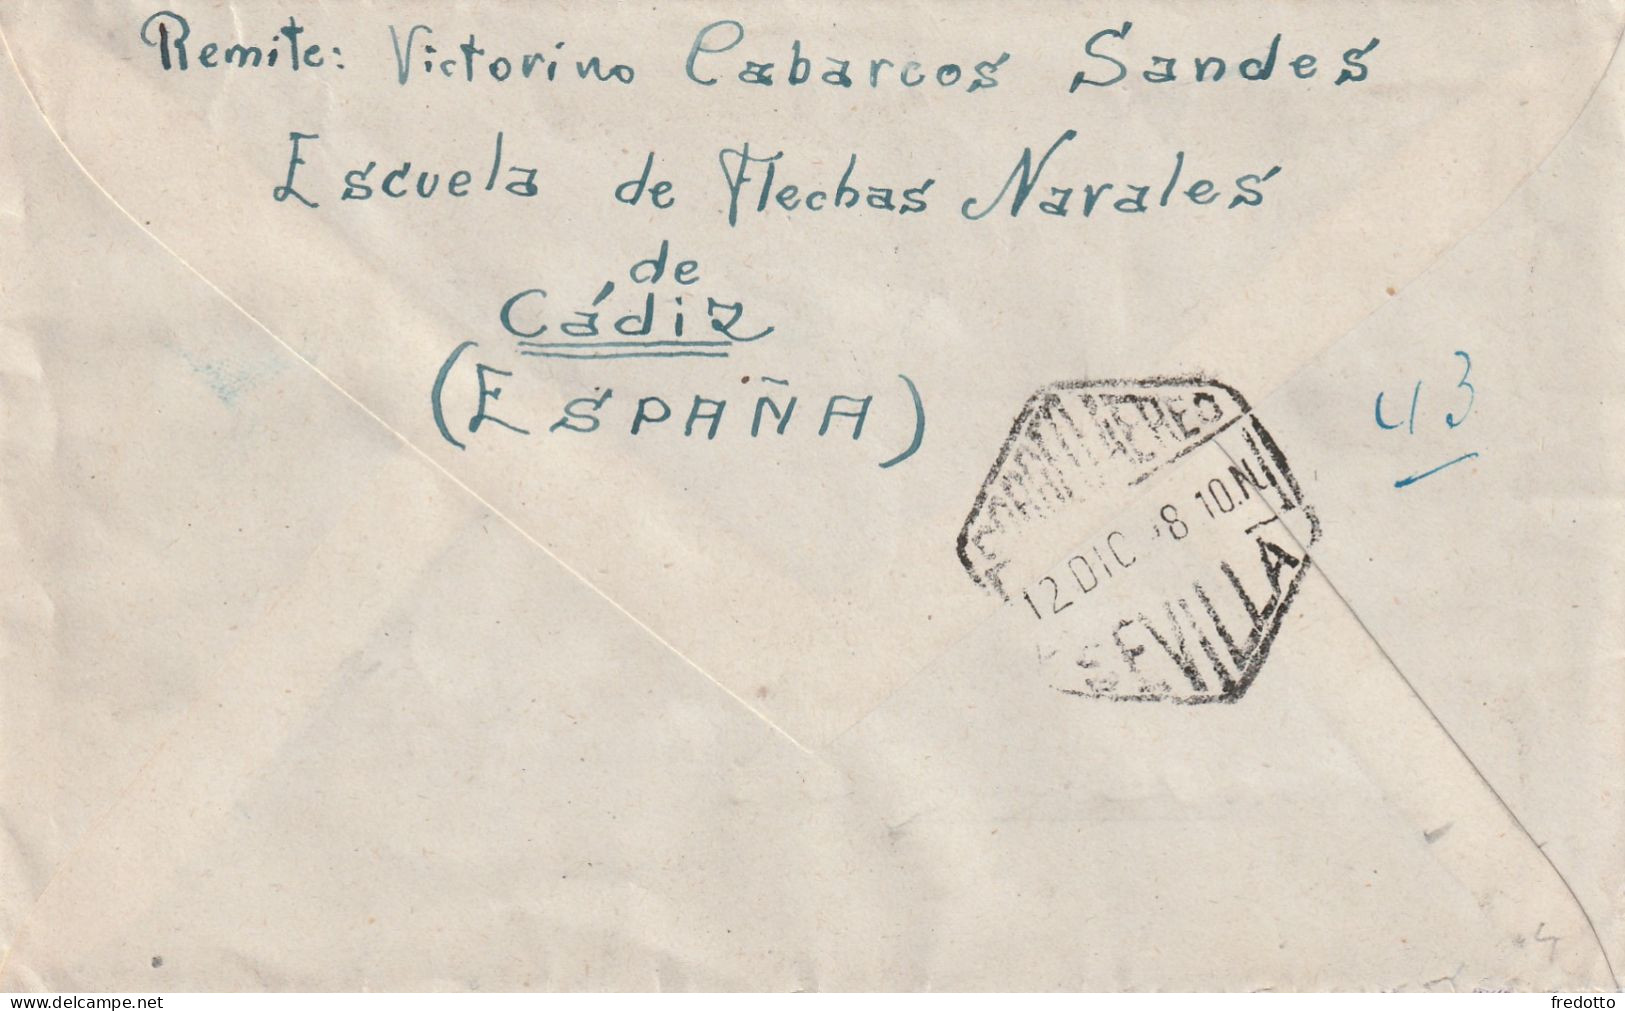 Remite: Victorino Cabarcos Sandes
Escuela de Flechas Navales
de
Cádiz
(ESPAÑA)
43
12 DIC 10.N
SEVILLA
www.delcampe.net
fredotto